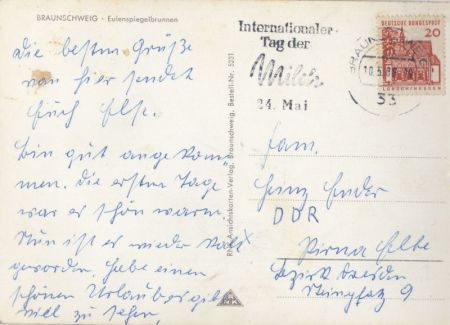 BRAUNSCHWEIG - Eulenspiegelbrunnen
Die besten Grüße
von hier sendet
Euch Else.
Bin gut angekom-
men. Die ersten Tage
war es schön warm.
Nun ist es wieder kalt
geworden. Habe einen
schönen Urlaub, es gibt
viel zu sehen.
Bestell-Nr. 5231
Ansichtskarten-Verlag, Braunschweig,
Internationaler
Tag der
Milch
24. Mai
33
DEUTSCHE BUNDESPOST
20
LORSCH/HESSEN
Fam.
Heinz
DDR
Pirna Elbe
Bezirk Dresden
9